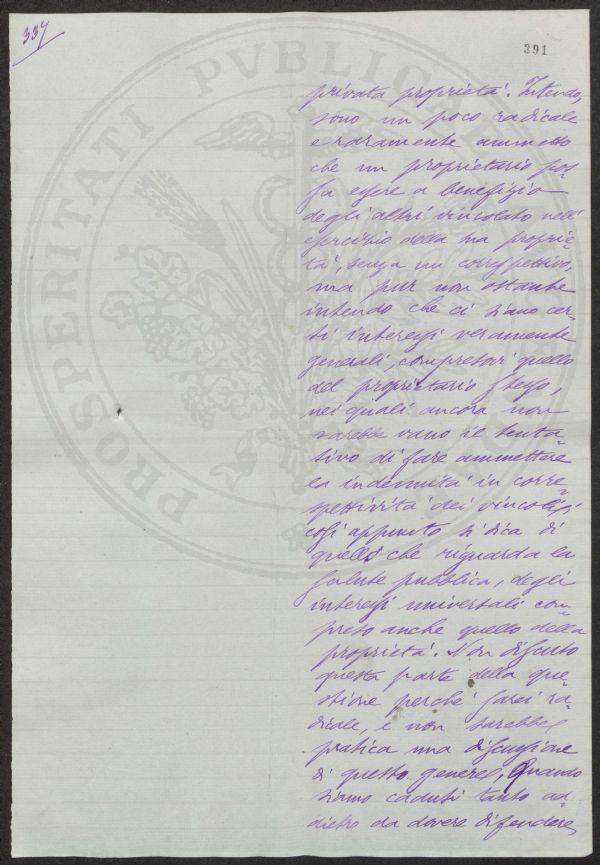 337
391
PROSPERITATI PUBLICAE
privata proprietà. Intendo,
sono un poco radicale
e raramente ammetto
che un proprietario pos-
sa essere a benefizio
degli altri vincolato nell'
esercizio della sua proprie-
tà, senza un correspettivo,
ma pur non ostante
intendo che ci siano cer-
ti interessi veramente
generali, compresovi quello
del proprietario stesso,
nei quali ancora non
sarebbe vano il tenta-
tivo di fare ammettere
la indennità in corre-
spettività dei vincoli;
così appunto si dica di
quello che riguarda la
salute pubblica, degli
interessi universali com-
preso anche quello della
proprietà. Non discuto
questa parte della que-
stione perché sarei ra-
dicale, e non sarebbe
pratica una discussione
di questo genere. Quando
siamo caduti tanto ad-
dietro da dovere difendere,